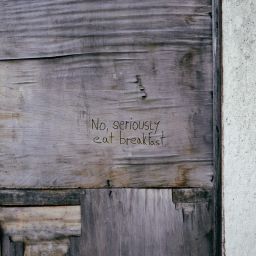 No, seriously
eat breakfast.